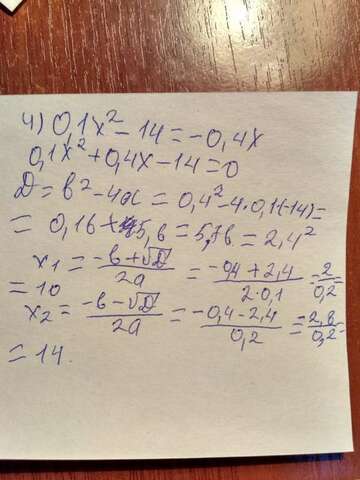 4) 0,1x² - 14 = -0,4x
0,1x² + 0,4x - 14 = 0
D = b² - 4ac = 0,4² - 4·0,1(-14) =
= 0,16 + 5,6 = 5,76 = 2,4²
x1 = (-b + √D)/2a = (-0,4 + 2,4)/(2·0,1) = 2/0,2 =
= 10
x2 = (-b - √D)/2a = (-0,4 - 2,4)/0,2 = 2,8/0,2 =
= 14.